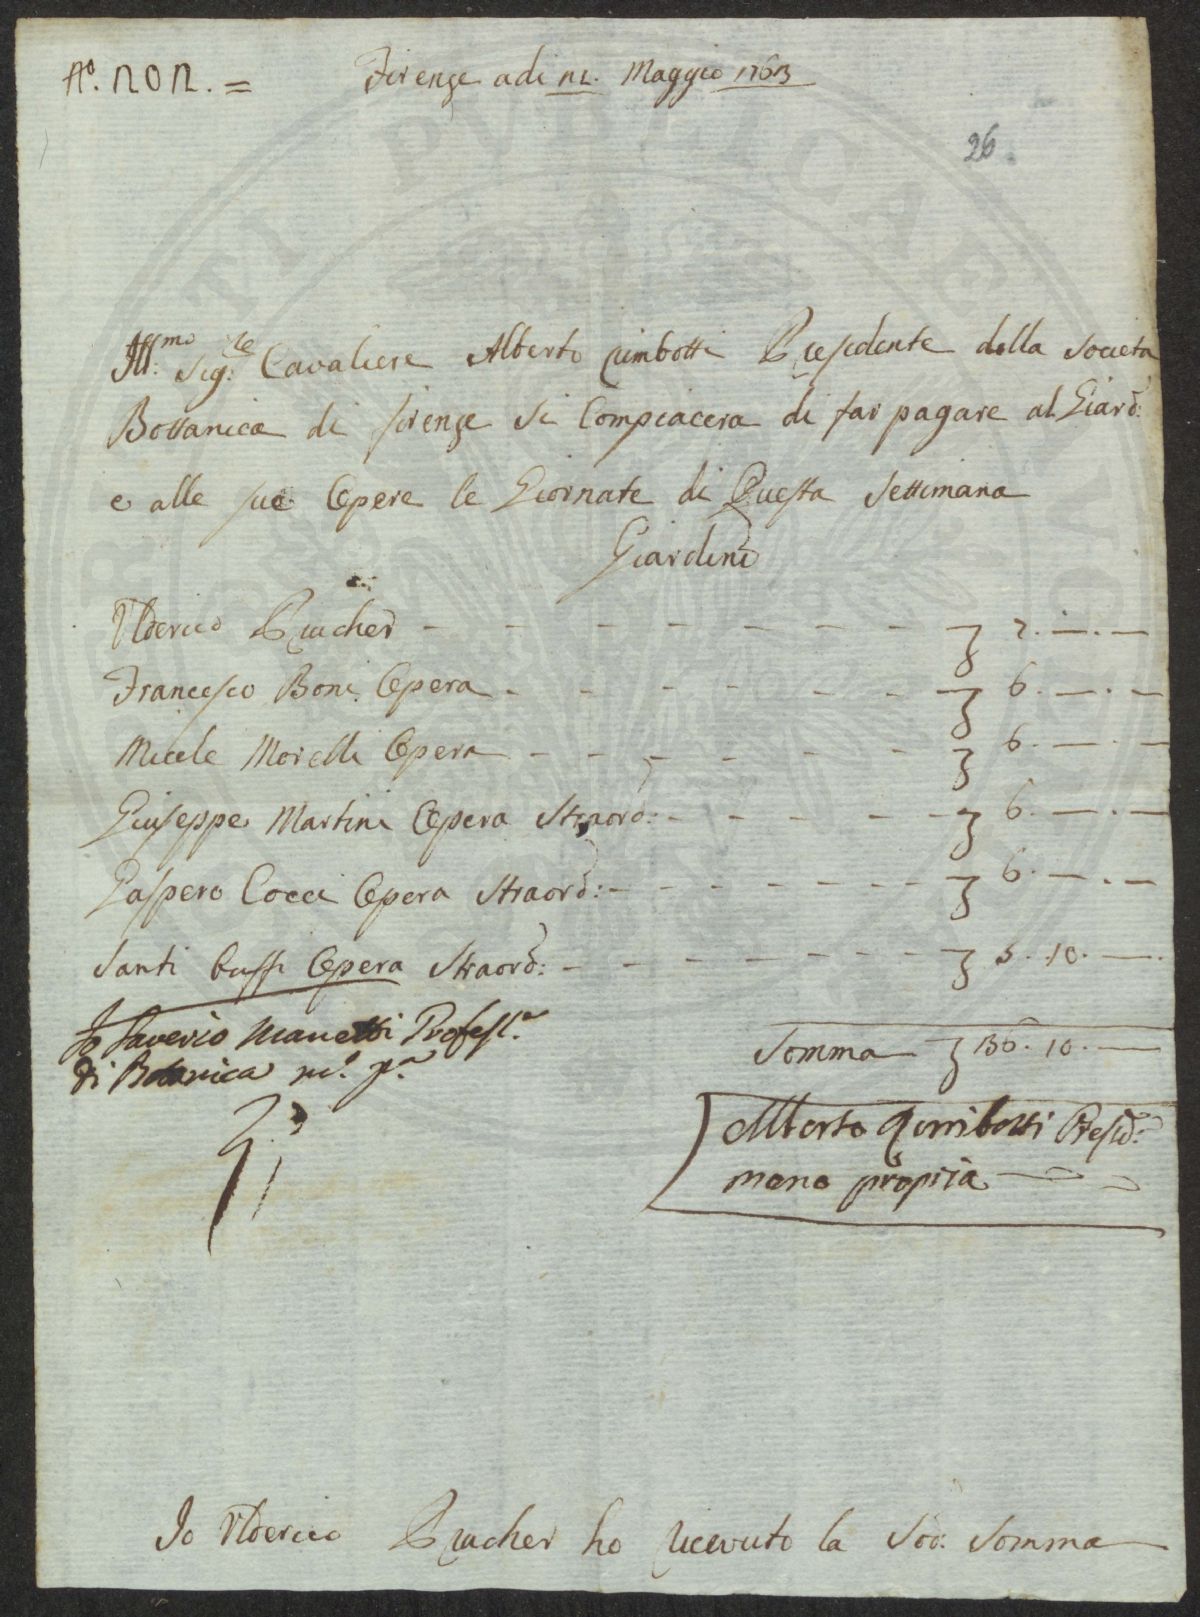 Firenze adi Maggio 1763
26
Ill:mo Sig:re Cavaliere Alberto Rimbotti Presidente della Società
Bottanica di firenze Si Compiacera di far pagare al Giard:
e alle sue Opere le Giornate di Questa Settimana
Giardin
Ulderico Prucher - - - - - - - - 7. — . —
Francesco Boni Opera - - - - - - 6. — . —
Micele Morelli Opera - - - - - - 6. — . —
Giuseppe Martini Opera Straord: - - - - - 6. — . —
Gaspero Cocci Opera Straord: - - - - - - 6. — . —
Santi Opera Straord: - - - - - - 5. 10. —
Io Saverio Manetti Profess.e
di Botanica m.o p.a
Somma 36. 10. —
Alberto Rimbotti Presid:
mano propria
Io Ulderico Prucher ho ricevuto la Sod: Somma